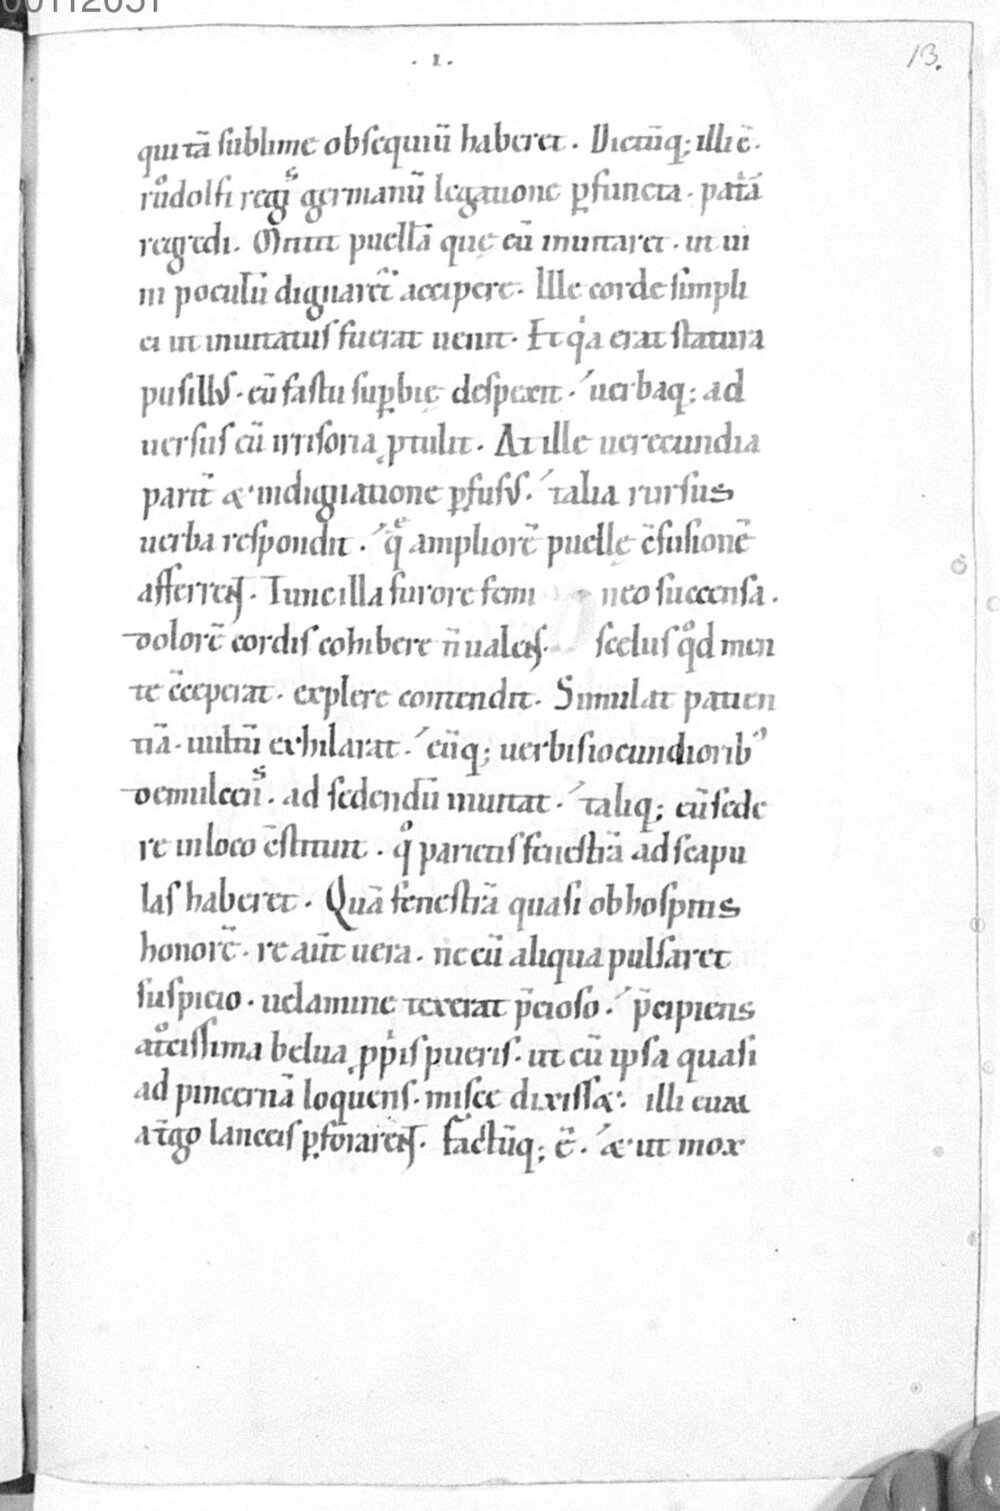 00112051
· 1 ·
13.
qui tā sublime obsequiū haberet. Dictūq; illi ē.
růdolfi regis germanū legatione ꝑfuncta. pat'ā
regredi. Mittit puellā quę eū inuitaret. ut ui
ni poculū dignaret' accipere. Ille corde simpli
ci ut inuitatus fuerat uenit. Et q'a erat statura
pusillus. eū fastu supbię despexit. uerbaq; ad
uersus eū irrisoria ꝓtulit. At ille uerecundia
parit' & indignatione ꝑfusus. talia rursus
uerba respondit. q̄ ampliorē puellę c̄fusionē
afferrent. Tunc illa furore femi neo succensa.
dolorē cordis cohibere n̄ ualens. scelus qod men
te c̄ceperat. explere contendit. Simulat patien
tiā. uultū exhilarat. eūq; uerbis iocundiorib'
demulcens. ad sedendū inuitat. taliq; eū sede
re in loco c̄stituit. qo parietis fenestrā ad scapu
las haberet. Quā fenestrā quasi ob hospitis
honorē. re aut̄ uera. ne cū aliqua pulsaret
suspicio. uelamine texerat p̄cioso. p̄cipiens
atͦcissima belua ꝓp'is pueris. ut cū ipsa quasi
ad pincernā loquens. misce dixiss&. illi eum
a t'go lanceis ꝑforarent. Factūq; ē. & ut mox